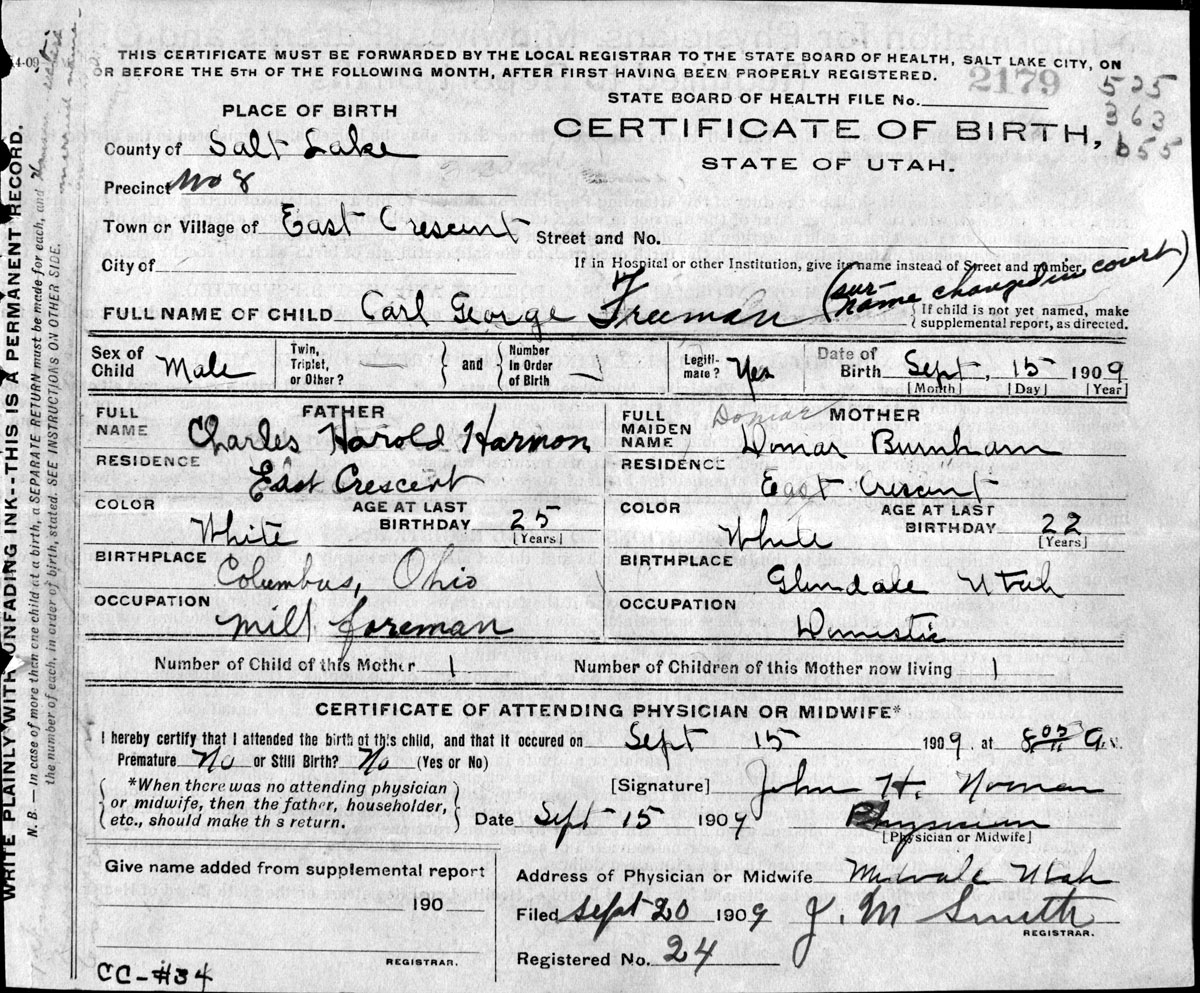 THIS CERTIFICATE MUST BE FORWARDED BY THE LOCAL REGISTRAR TO THE STATE BOARD OF HEALTH, SALT LAKE CITY, ON
OR BEFORE THE 5TH OF THE FOLLOWING MONTH, AFTER FIRST HAVING BEEN PROPERLY REGISTERED.
2179
525
363
655
PLACE OF BIRTH
STATE BOARD OF HEALTH FILE No.
County of Salt Lake
CERTIFICATE OF BIRTH,
STATE OF UTAH.
Precinct No 8
Town or Village of East Crescent Street and No.
City of
If in Hospital or other Institution, give its name instead of Street and number.
FULL NAME OF CHILD Carl George Freeman (sur-name changed in court)
{ If child is not yet named, make
supplemental report, as directed.
Sex of Child Male
Twin, Triplet, or Other? — } and { Number in Order of Birth —
Legitimate? Yes
Date of Birth Sept, 15 1909
[Month] [Day] [Year]
FATHER
FULL NAME Charles Harold Harmon
RESIDENCE East Crescent
COLOR White
AGE AT LAST BIRTHDAY 25
[Years]
BIRTHPLACE Columbus, Ohio
OCCUPATION Mill foreman
Domar
MOTHER
FULL MAIDEN NAME Domar Burnham
RESIDENCE East Crescent
COLOR White
AGE AT LAST BIRTHDAY 22
[Years]
BIRTHPLACE Glendale Utah
OCCUPATION Domestic
Number of Child of this Mother 1 Number of Children of this Mother now living 1
CERTIFICATE OF ATTENDING PHYSICIAN OR MIDWIFE*
I hereby certify that I attended the birth of this child, and that it occured on Sept 15 1909 at 8 05 A.M.
Premature No or Still Birth? No (Yes or No)
*When there was no attending physician
or midwife, then the father, householder,
etc., should make th s return.
[Signature] John H. Noman
Date Sept 15 1909 Physician
[Physician or Midwife]
Give name added from supplemental report
190
REGISTRAR.
Address of Physician or Midwife Midvale Utah
Filed Sept 20 1909 J. M Smith
REGISTRAR.
Registered No. 24
CC-#34
WRITE PLAINLY WITH UNFADING INK--THIS IS A PERMANENT RECORD.
N. B. — In case of more than one child at a birth, a SEPARATE RETURN must be made for each, and
the number of each, in order of birth, stated. SEE INSTRUCTIONS ON OTHER SIDE.